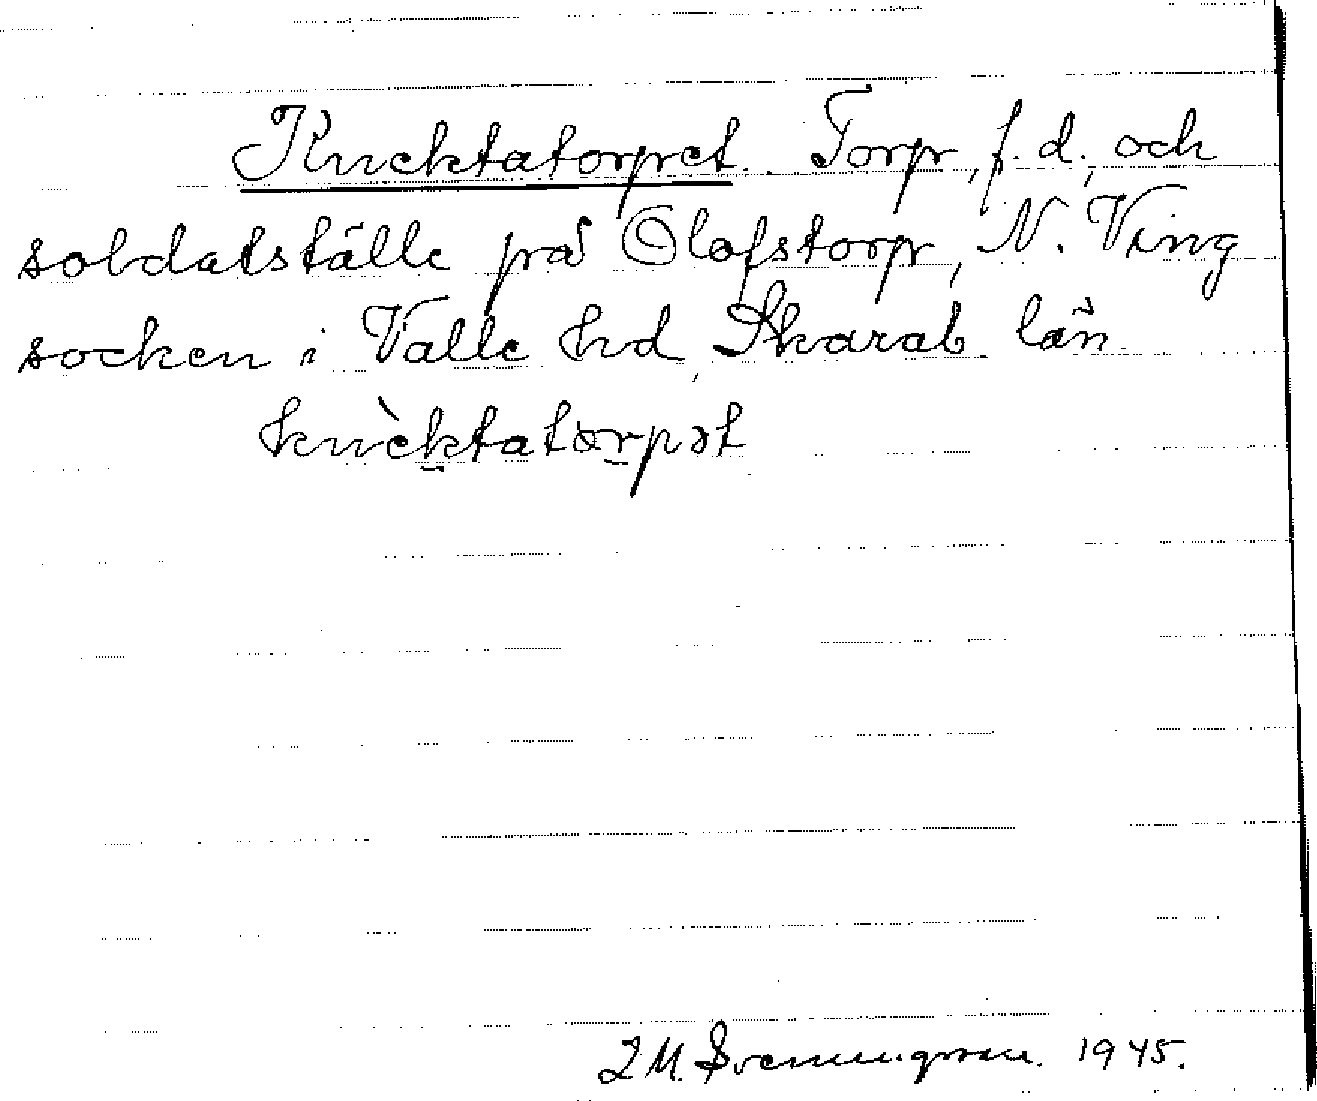 Knecktatorpet. Torp, f. d., och
soldatställe på Olofstorp, N. Ving
socken i Valle hd, Skarab. län.
knècktatorpət
1945.